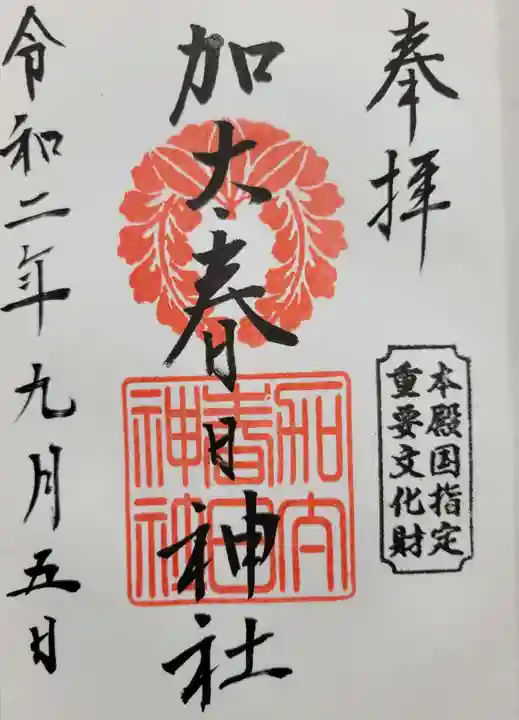 奉拝
本殿国指定
重要文化財
加太春日神社
加太
春日
神社
令和二年九月五日